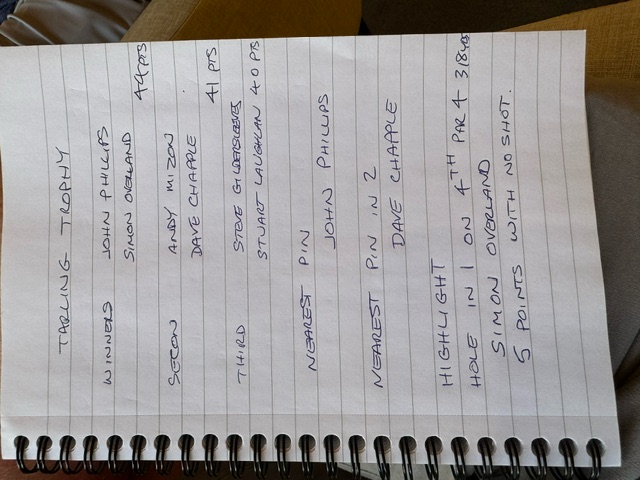 TARLING TROPHY
WINNERS JOHN PHILLIPS
SIMON OVERLAND 44 PTS
SECON ANDY MIZON
DAVE CHAPPLE 41 PTS
THIRD STEVE GILDERSLEEVES
STUART LAUGHLAN 40 PTS
NEAREST PIN
JOHN PHILLIPS
NEAREST PIN IN 2
DAVE CHAPPLE
HIGHLIGHT
HOLE IN 1 ON 4TH PAR 4 318YDS
SIMON OVERLAND
5 POINTS WITH NO SHOT.